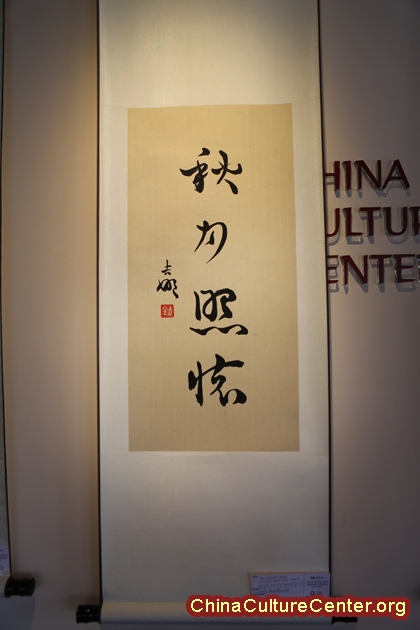 秋月照怀
CHINA
CULTUR
CENTE
ChinaCultureCenter.org